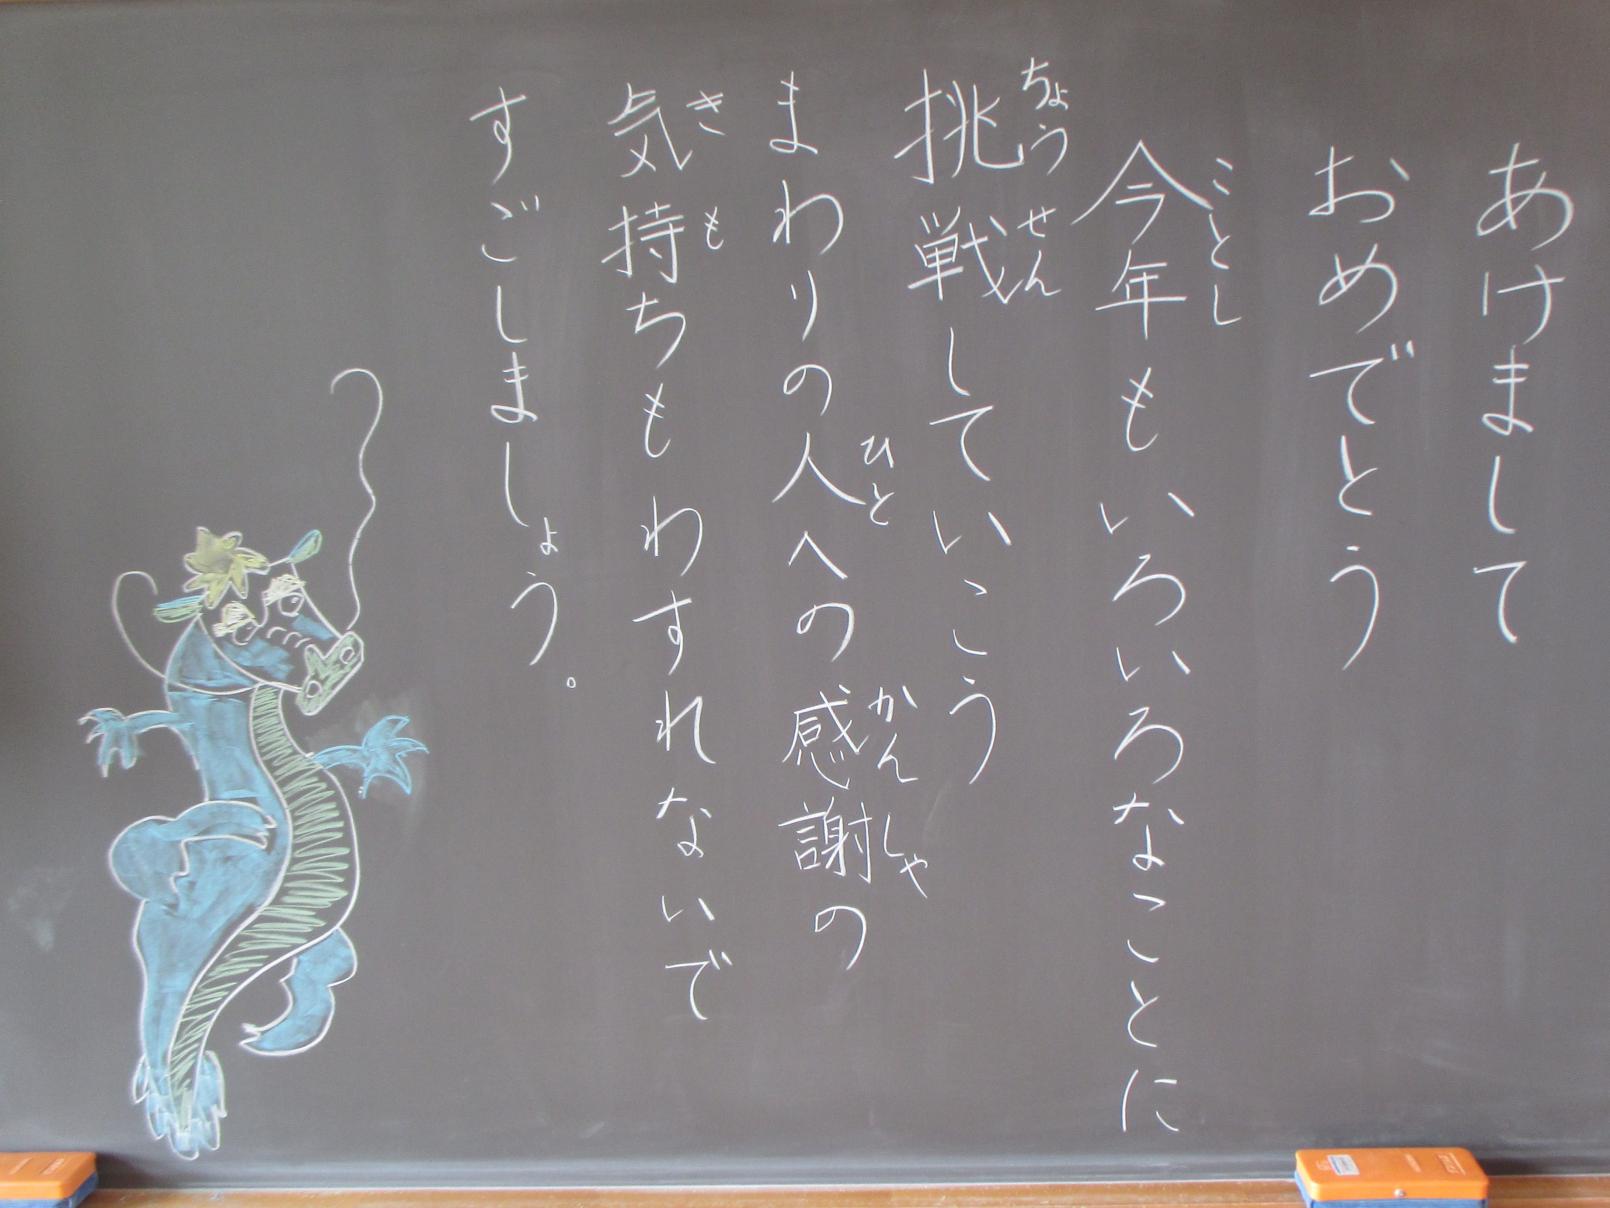 あけまして
おめでとう
今年もいろいろなことに
ことし
挑戦していこう
ちょうせん
まわりの人への感謝の
ひと
かんしゃ
気持ちもわすれないで
きも
すごしましょう。